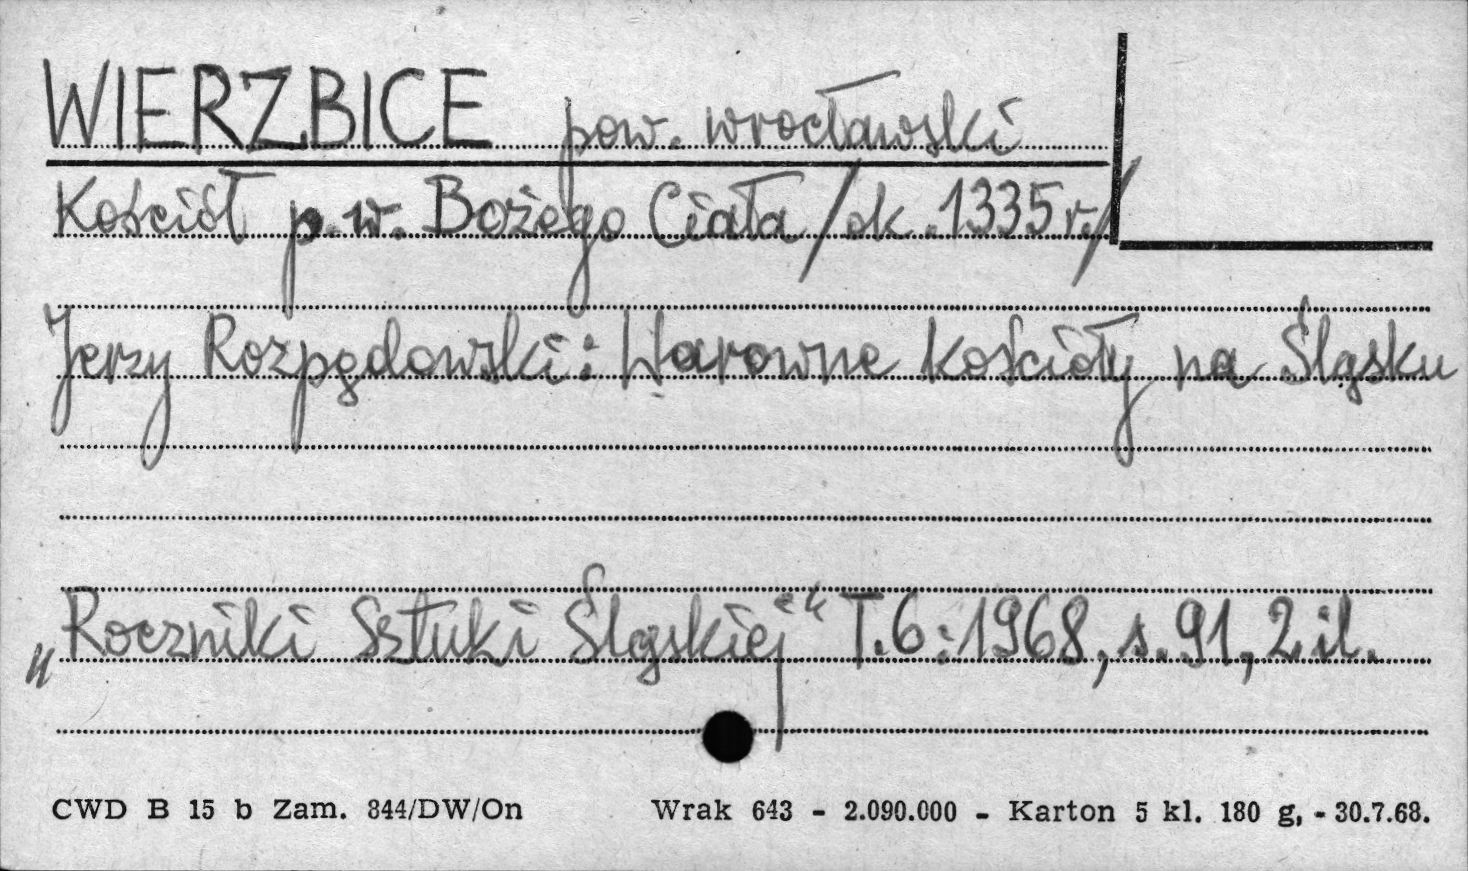 WIERZBICE pow. wrocławski
Kościół p.w. Bożego Ciała /ok. 1335 r./
Jerzy Rozpędowski: Warowne kościoły na Śląsku
„Roczniki Sztuki Śląskiej“ T.6:1968, s.91, 2 il.
CWD B 15 b Zam. 844/DW/On Wrak 643 - 2.090.000 - Karton 5 kl. 180 g, - 30.7.68.